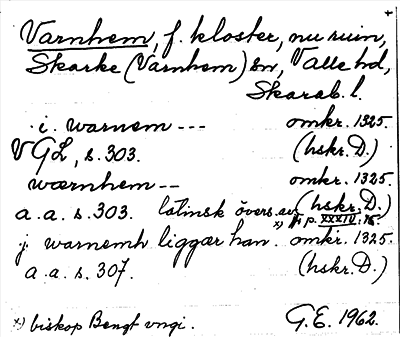 Varnhem, f. kloster, nu ruin,
Skarke (Varnhem) sn, Valle hd,
Skarab. l.
i. warnem --- omkr. 1325.
VGL, s. 303. (hskr. D.)
wærnhem -- omkr. 1325.
a. a. s. 303. latinsk övers. av (hskr. D.)
x) p. XXXIV: 16.
j warnemh liggær han. omkr. 1325.
a. a. s. 307. (hskr. D.)
x) biskop Bengt vngi. G.E. 1962.